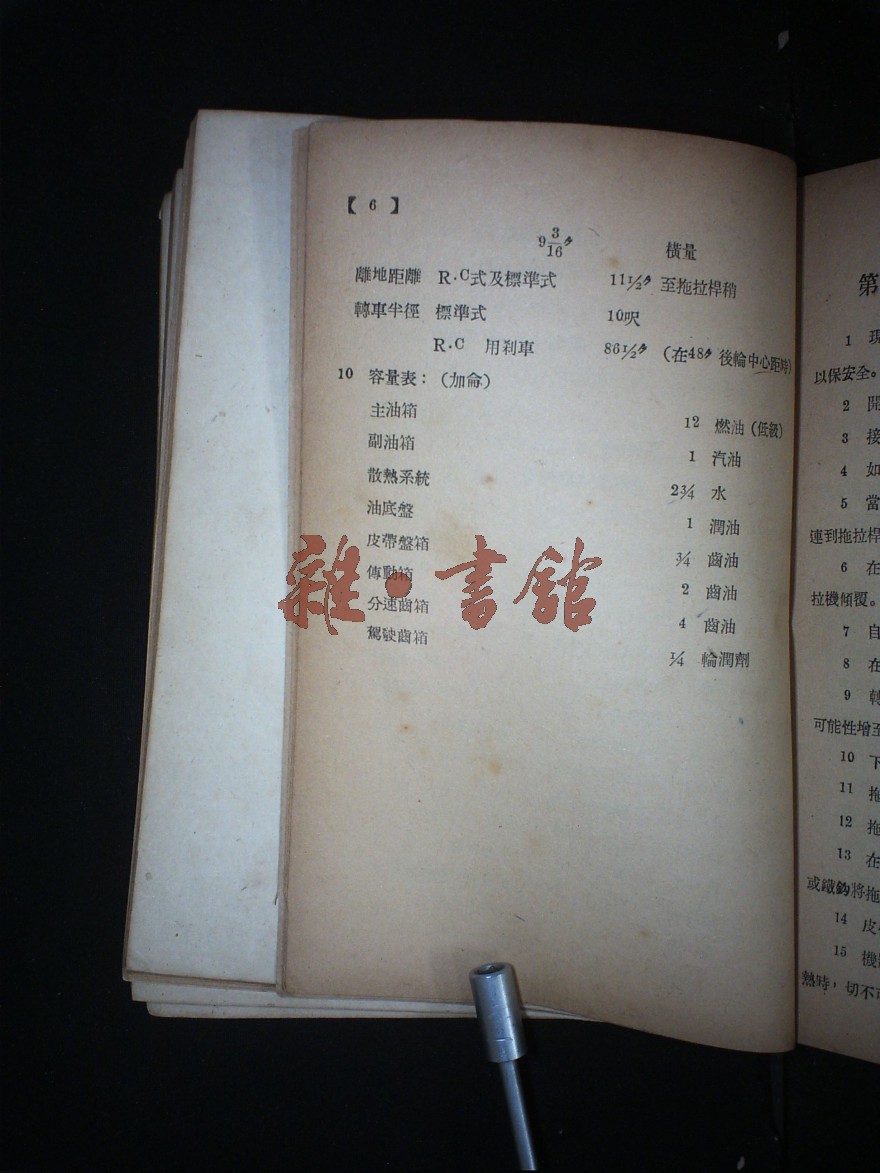 【 6 】
9 3/16〃 橫量
離地距離 R.C式及標準式 11 1/2〃 至拖拉桿稍
轉車半徑 標準式 10呎
R.C 用剎車 86 1/2〃 (在48〃後輪中心距時)
10 容量表：(加侖)
主油箱 12 燃油(低級)
副油箱 1 汽油
散熱系統 2 3/4 水
油底盤 1 潤油
皮帶盤箱 3/4 齒油
傳動箱 2 齒油
分速齒箱 4 齒油
駕駛齒箱 1/4 輪潤劑
雜·書館
第
1 現
以保安全。
2 開
3 接
4 如
5 當
連到拖拉桿
6 在
拉機傾覆。
7 自
8 在
9 轉
可能性增至
10 下
11 拖
12 拖
13 在
或鐵鈎將拖
14 皮
15 機
熱時，切不可